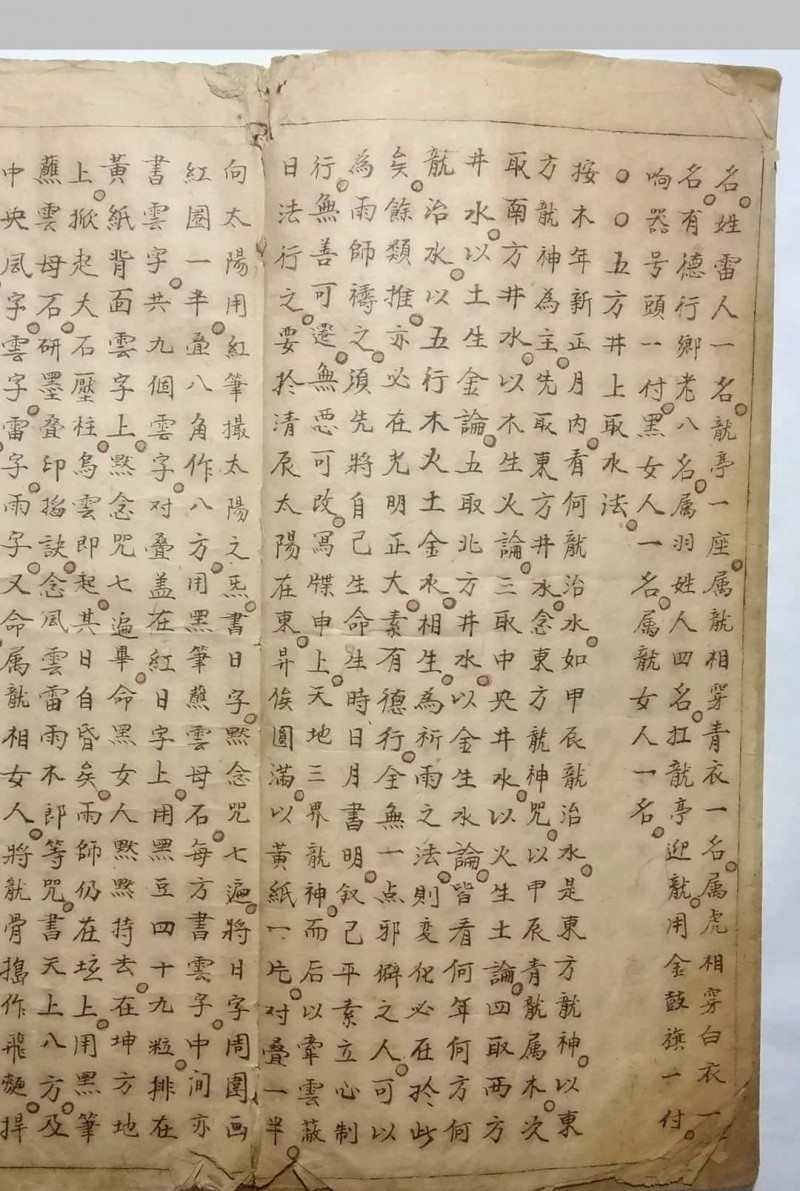 名。姓雷人一名。龍亭一座。属龍相穿青衣一名。属虎相穿白衣一
名。有德行鄉老八名。属羽姓人四名。扛龍亭迎龍。用金鼓旗一付。
响器号頭一付。黑女人一名。属龍女人一名。
○○五方井上取水法。
按木年新正月內。看何龍治水。如甲辰龍治水。是東方龍神。以東
方龍神為主。先取東方井水。念東方龍神咒。以甲辰青龍属木。次
取南方井水。以木生火論。三取中央井水。以火生土論。四取西方
井水。以土生金論。五取北方井水。以金生水論。皆看何年何方何
龍治水。以五行木火土金水。相生。為祈雨之法。則变化必在於此
矣。餘類推。亦必在光明正大。素有德行。全無一点邪僻之人。可以
為雨師禱之。須先將自己生命生時日月書明。叙己平素立心制
行。無善可遷。無惡可改。寫牒申上天地三界龍神。而后以牽雲蔽
日法行之。要於清辰太陽在東昇。俟圓滿。以黃紙一片。对叠一半。
向太陽用紅筆撮太陽之炁。書日字。黙念咒七遍。將日字周圍画
紅圈一半。叠八角作八方。用黑筆蘸雲母石。每方書雲字。中间亦
書雲字。共九個雲字。对叠盖在紅日字上。用黑豆四十九粒。排在
黃紙背面雲字上。黙念咒七遍畢。命黑女人黙黙持去。在坤方地
上。掀起大石壓柱。烏雲即起。其日自昏矣。雨師仍在坛上。用黑筆
蘸雲母石。研墨叠印搯訣。念風雲雷雨木郎等咒。書天上八方。及
中央風字。雲字。雷字。雨字。又命属龍相女人。將龍骨搗作飛麵。捍